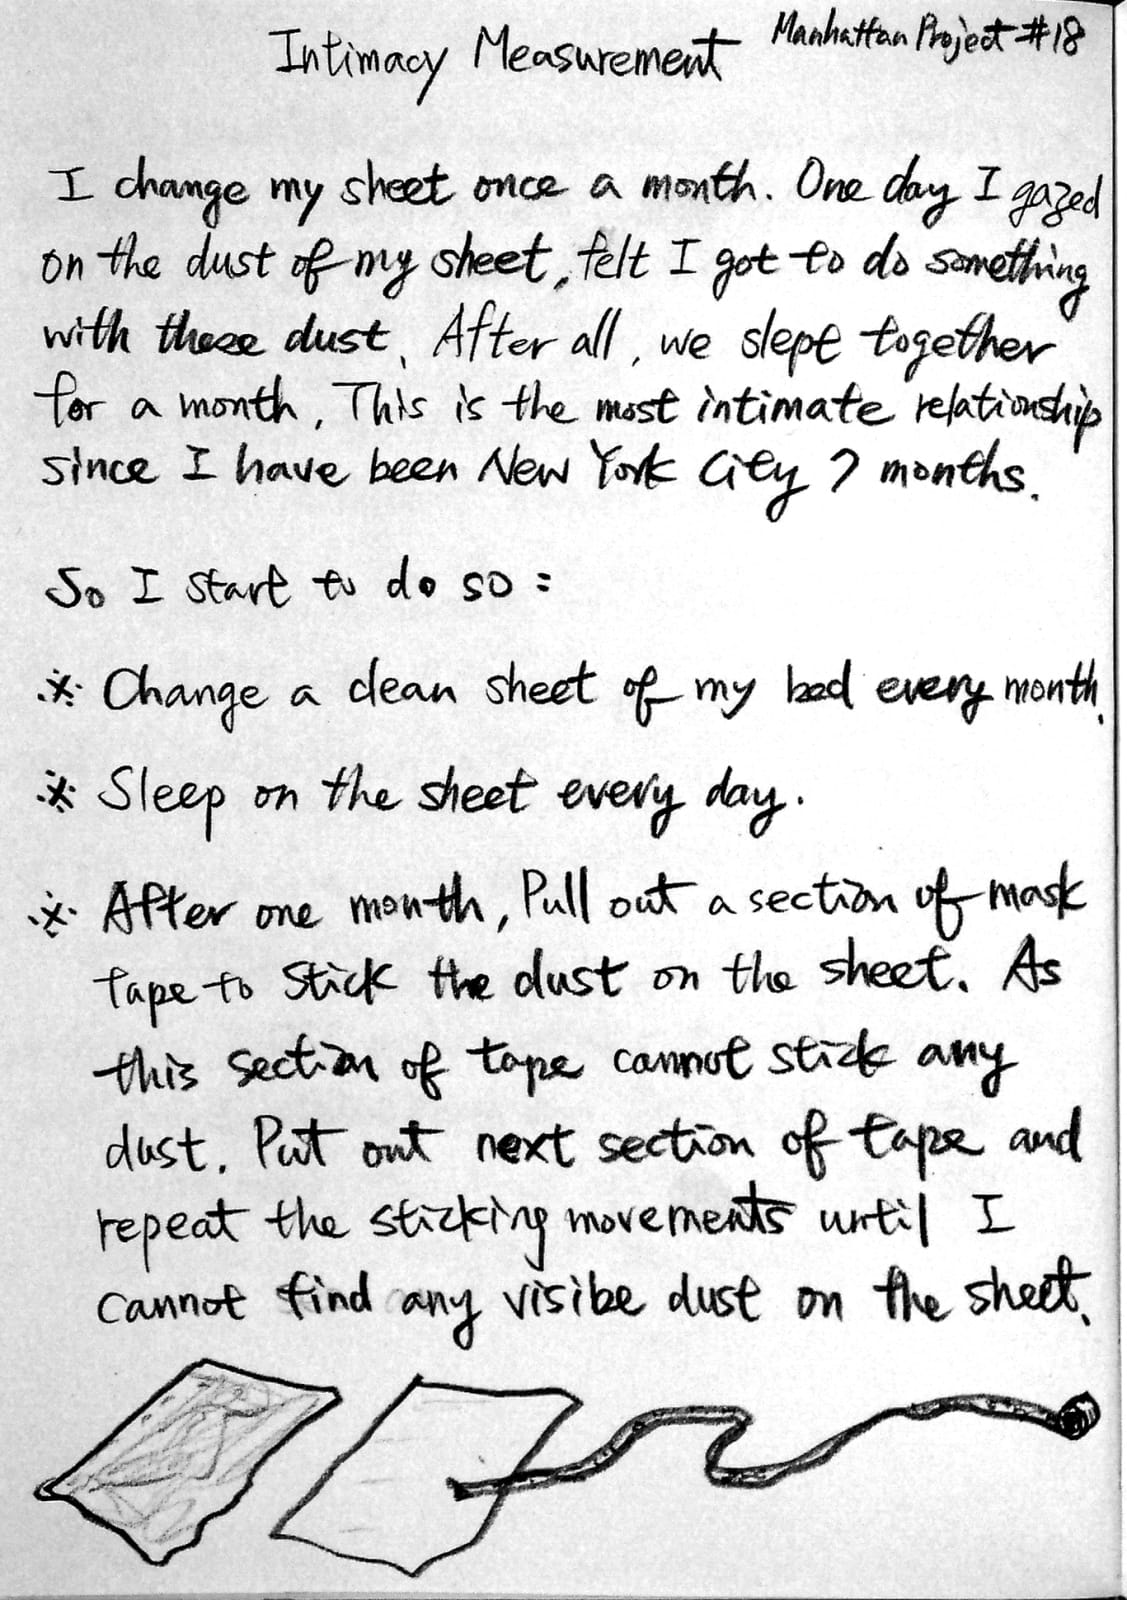 Intimacy Measurement
Manhattan Project #18
I change my sheet once a month. One day I gazed
on the dust of my sheet, felt I got to do something
with these dust. After all, we slept together
for a month. This is the most intimate relationship
since I have been New York City 7 months.
So I start to do so:
※ Change a clean sheet of my bed every month.
※ Sleep on the sheet every day.
※ After one month, Pull out a section of mask
tape to stick the dust on the sheet. As
this section of tape cannot stick any
dust. Put out next section of tape and
repeat the sticking movements until I
cannot find any visibe dust on the sheet.